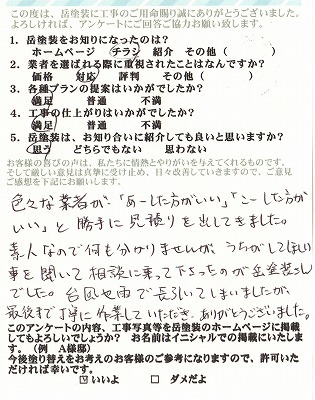 この度は、岳塗装に工事のご用命賜り誠にありがとうございました。
よろしければ、アンケートにご回答ご協力お願い致します。
1. 岳塗装をお知りになったのは?
ホームページ チラシ 紹介 その他( )
2. 業者を選ばれる際に重視されたことはなんですか?
価格 対応 評判 その他( )
3. 各種プランの提案はいかがでしたか?
満足 普通 不満
4. 工事の仕上がりはいかがでしたか?
満足 普通 不満
5. 岳塗装は、お知り合いに紹介しても良いと思いますか?
思う どちらでもない 思わない
お客様の喜びの声は、私たちに情熱とやりがいを与えてくれるものです。
そして厳しい意見は真摯に受け止め、日々改善していきますので、ご意見
ご感想を下記にお願いします。
色々な業者が、「あーした方がいい」「こーした方が
いい」と勝手に見積りを出してきました。
素人なので何も分かりませんが、うちがしてほしい
事を聞いて相談に乗って下さったのが岳塗装さん
でした。台風や雨で長引いてしまいましたが、
最後まで丁寧に作業していただき、ありがとうございました。
このアンケートの内容、工事写真等を岳塗装のホームページに掲載
してもよろしいでしょうか? お名前はイニシャルでの掲載にいたしま
す。(例 A様邸)
今後塗り替えをお考えのお客様のご参考になりますので、許可いた
だければ幸いです。
☑ いいよ □ ダメだよ